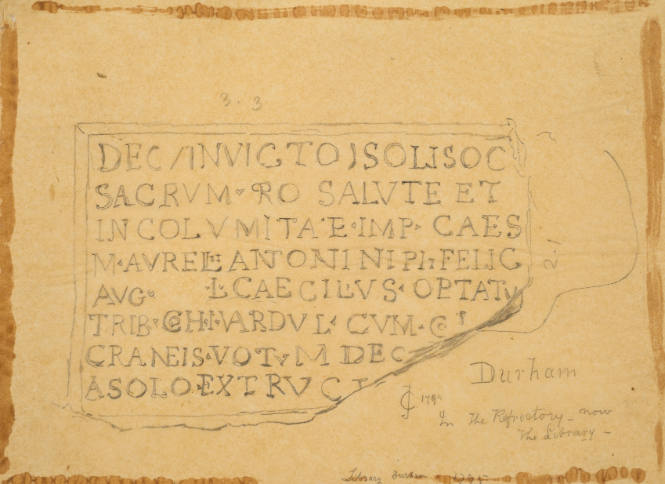 3.3
DEO INVICTO SOLI SOC
SACRVM · RO SALVTE ET
INCOLVMITA E · IMP · CAES
M · AVRELI ANTONINI PII FELIC
AVG · L · CAECILIVS · OPTATV
TRIB · COH · I · VARDVL · CVM · CO
CRANEIS · VOTVM DEO
A SOLO · EXTRVCT
2.1
Durham
In The Refrectory - now
The Library -
Library Durham